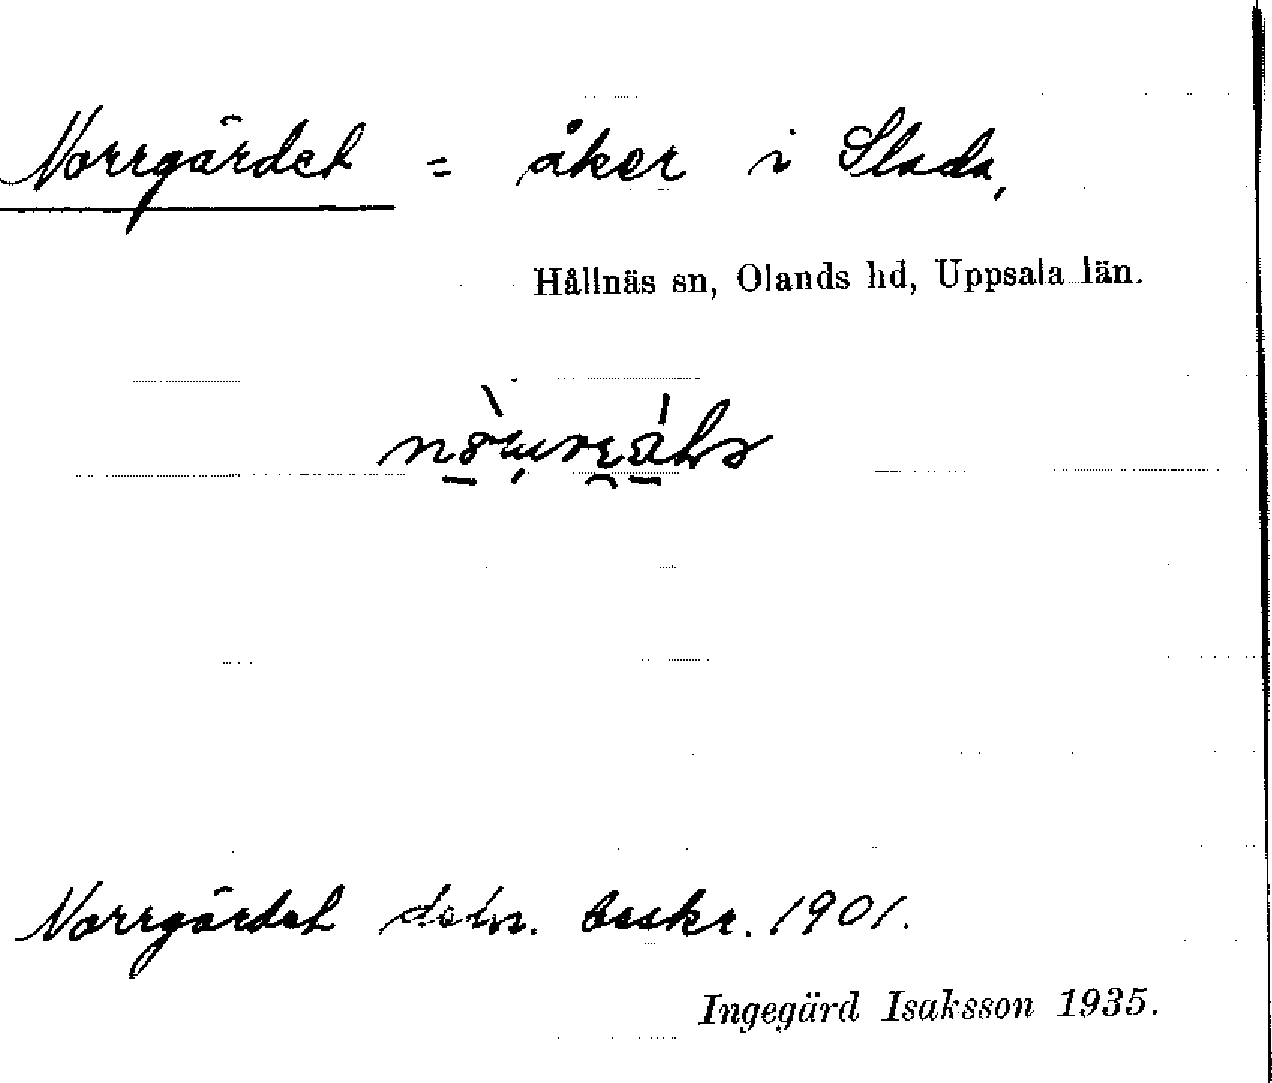 Norrgärdet = åker i Slada,
Hållnäs sn, Olands hd, Uppsala län.
Norrgärdet dsbn. beskr. 1901.
Ingegärd Isaksson 1935.